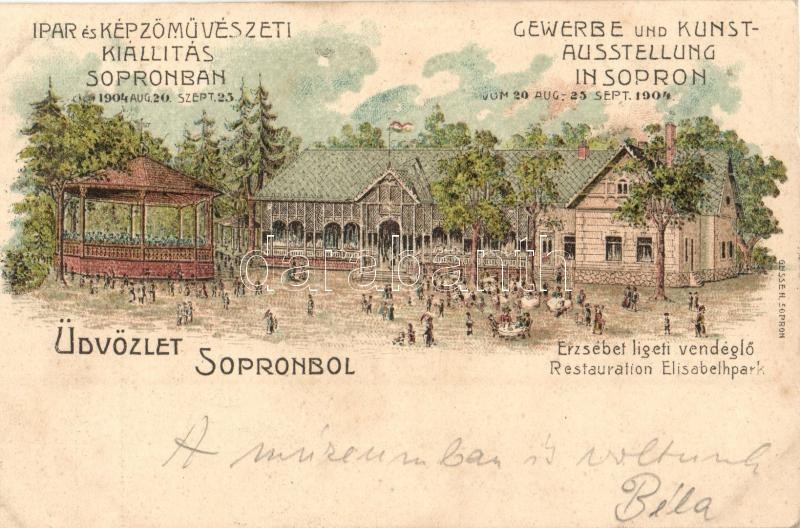 IPAR és KÉPZŐMŰVÉSZETI
KIÁLLITÁS
SOPRONBAN
1904 AUG. 20. SZEPT. 25.
GEWERBE UND KUNST-
AUSSTELLUNG
IN SOPRON
VOM 20 AUG.- 25 SEPT. 1904
darabanth
GESSE H. SOPRON
ÜDVÖZLET SOPRONBOL
Erzsébet ligeti vendéglő
Restauration Elisabethpark
A múzeumban is voltunk
Béla